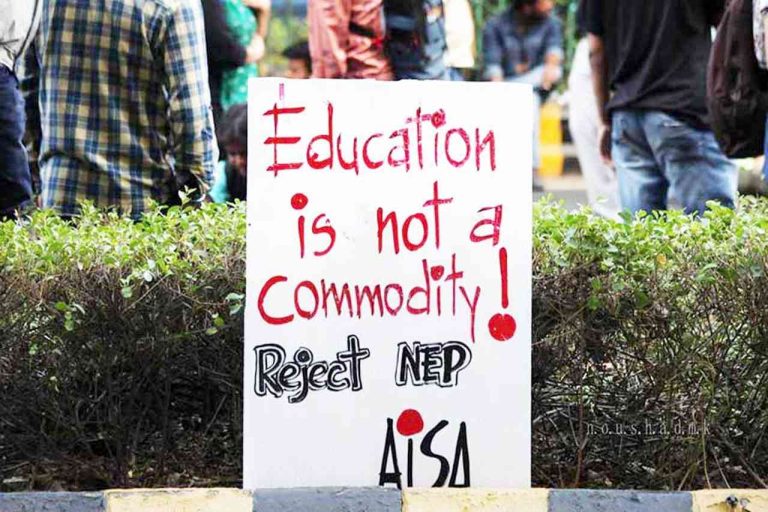 Education
is not a
commodity!
Reject NEP
AISA
noushadmk